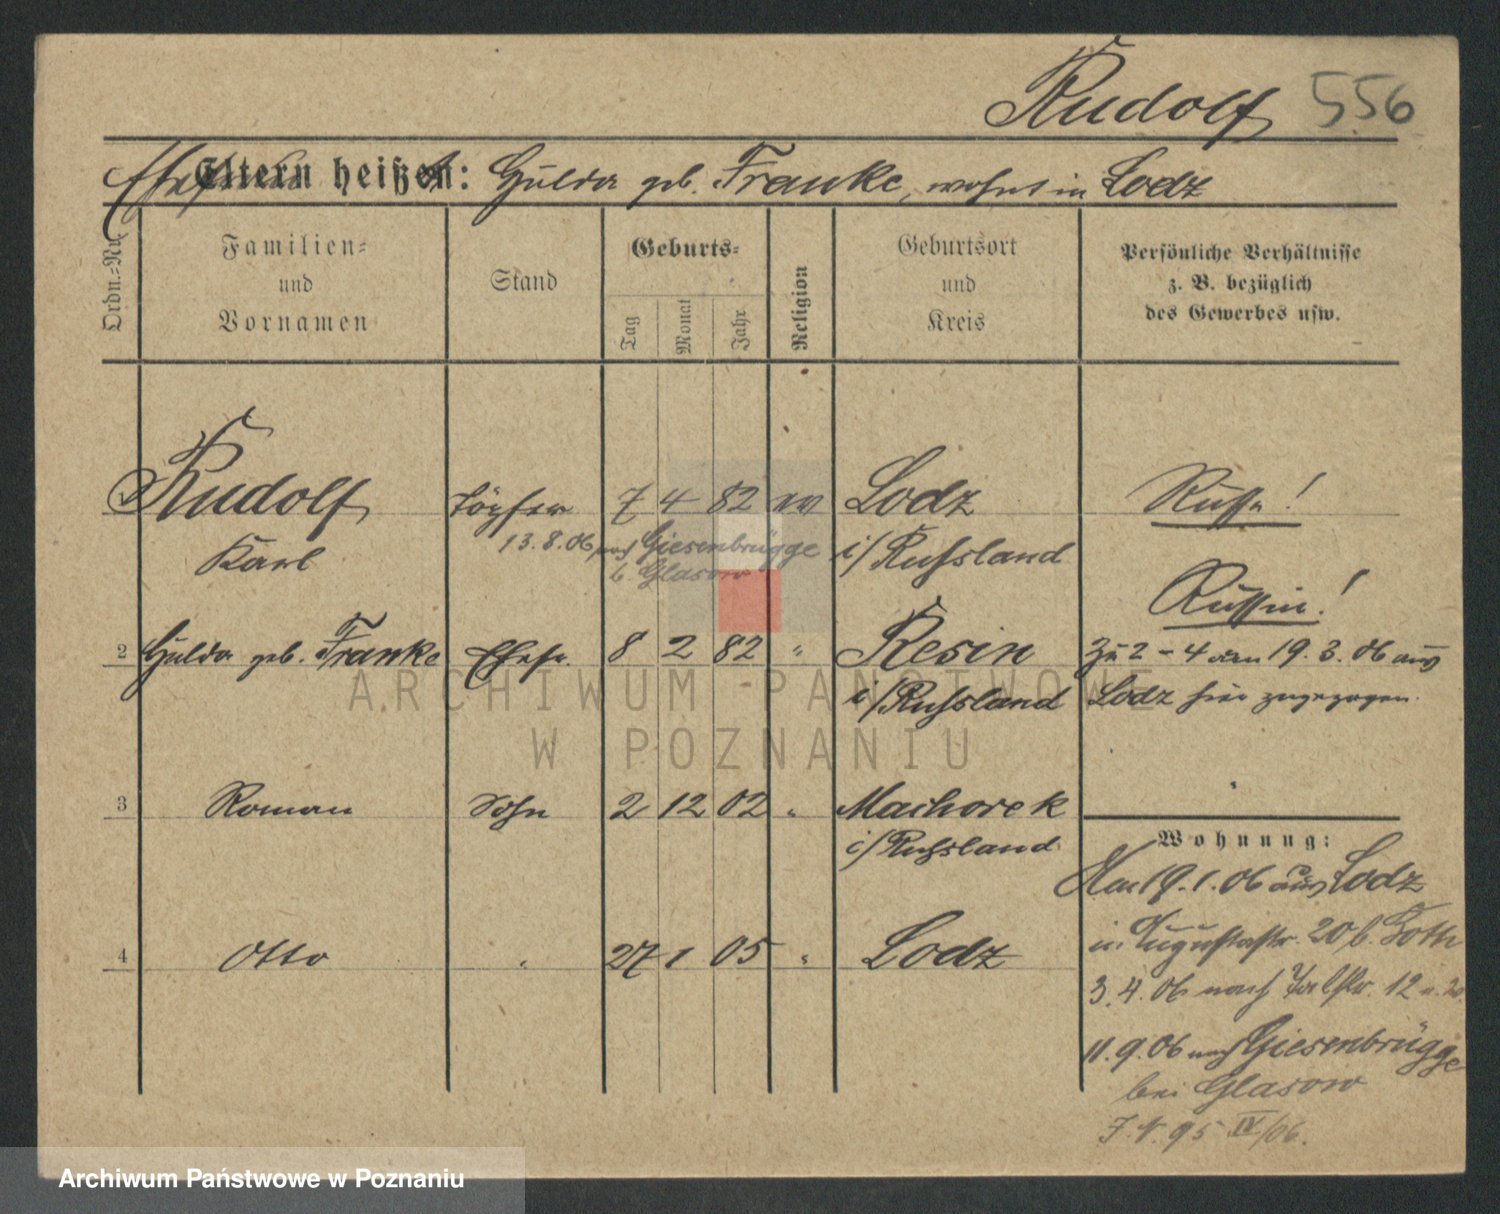 Rudolf 556
Eltern heißen: Hulda geb. Franke, wohnt in Lodz
Ordn.=Nr.
Familien=
und
Vornamen
Stand
Geburts=
Tag
Monat
Jahr
Religion
Geburtsort
und
Kreis
Persönliche Verhältnisse
z. B. bezüglich
des Gewerbes usw.
Rudolf Töpfer 7 4 82 ev Lodz Russe!
Karl 13.8.06 nach Giesenbrügge i/Russland
b. Glasow
Russin!
2 Hulda geb. Franke Ehefr. 8 2 82 " Resin Zu 2 - 4 am 19.3.06 aus
i/Russland Lodz hier zugezogen.
3 Roman Sohn 2 12 02 " Machorek
i/Russland
Wohnung:
19.1.06 aus Lodz
Augustastr. 20 b. Toth
4 Otto " 27 1 05 " Lodz
3.4.06 nach 12
11.9.06 nach Giesenbrügge
bei Glasow
J.N. 95 IV/06.
ARCHIWUM PAŃSTWOWE
W POZNANIU
Archiwum Państwowe w Poznaniu